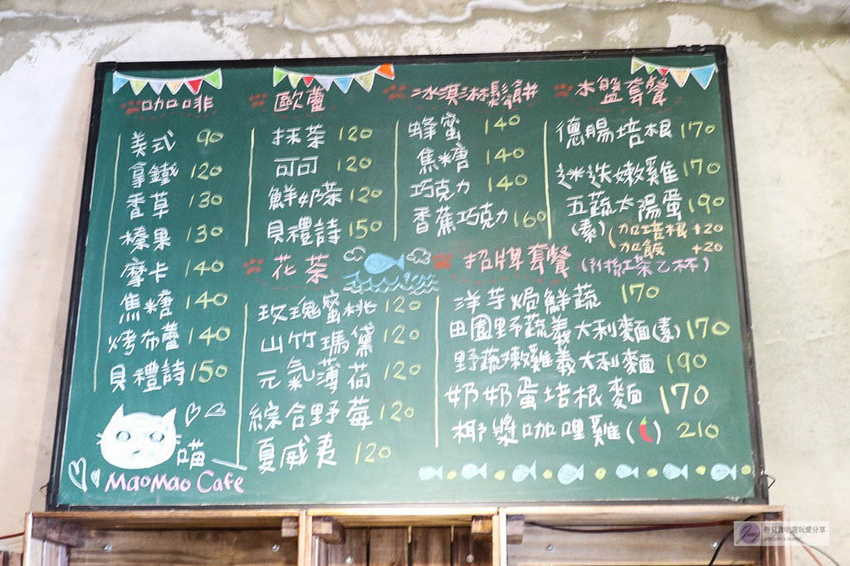 咖啡
美式 90
拿鐵 120
香草 130
榛果 130
摩卡 140
焦糖 140
烤布蕾 140
貝禮詩 150
歐蕾
抹茶 120
可可 120
鮮奶茶 120
貝禮詩 150
花茶
玫瑰蜜桃 120
山竹瑪黛 120
元氣薄荷 120
綜合野莓 120
夏威夷 120
冰淇淋鬆餅
蜂蜜 140
焦糖 140
巧克力 140
香蕉巧克力 160
木盤套餐
德腸培根 170
迷迭嫩雞 170
五蔬太陽蛋 190
(素) (加培根 +20
加飯 +20
招牌套餐 (附紅茶乙杯)
洋芋焗鮮蔬 170
田園野蔬義大利麵(素) 170
野蔬嫩雞義大利麵 190
奶奶蛋培根麵 170
椰漿咖哩雞( ) 210
喵
MaoMao Cafe